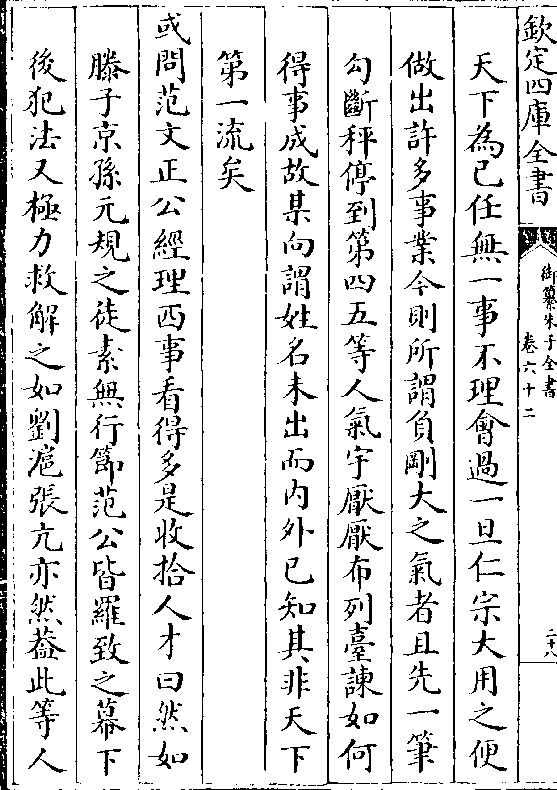 欽定四庫全書
御纂朱子全書
卷六十二
二十八
天下為已任無一事不理會過一旦仁宗大用之便
做出許多事業今則所謂負剛大之氣者且先一筆
勾斷秤停到第四五等人氣宇厭厭布列臺諫如何
得事成故某向謂姓名未出而內外已知其非天下
第一流矣
或問范文正公經理西事看得多是收拾人才曰然如
滕子京孫元規之徒素無行節范公皆羅致之幕下
後犯法又極力救解之如劉滬張亢亦然葢此等人